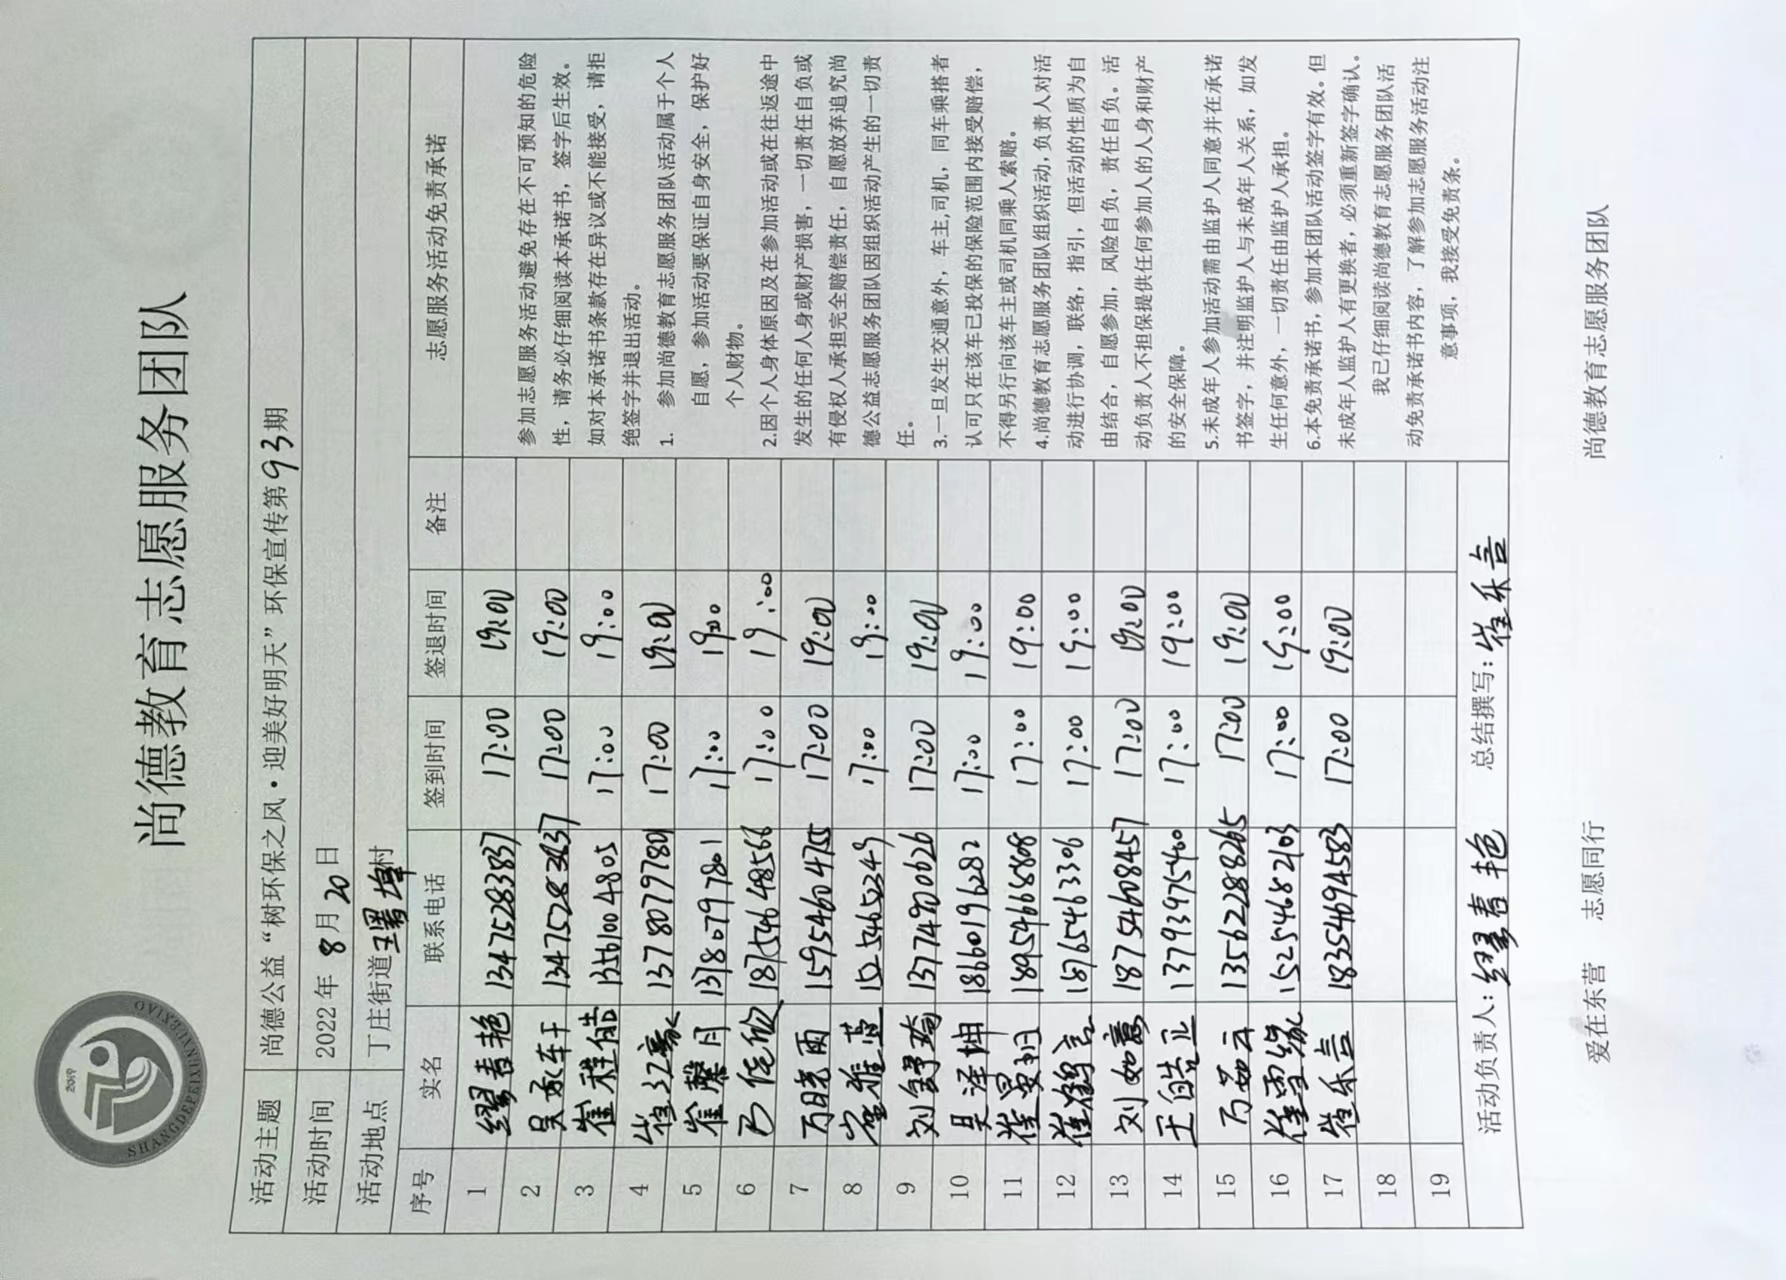 SHANGDEPEIXUNXUEXIAO
2019
尚德教育志愿服务团队
活动主题 尚德公益“树环保之风·迎美好明天”环保宣传第93期
活动时间 2022年8月20日
活动地点 丁庄街道王署埠村
序号 实名 联系电话 签到时间 签退时间 备注 志愿服务活动免责承诺
1 缪春艳 13475283837 17:00 19:00
2 吴承轩 13475283837 17:00 19:00
3 崔程皓 13561004805 17:00 19:00
4 崔立豪 13780797801 17:00 19:00
5 崔馨月 13780797801 17:00 19:00
6 17:00 19:00
7 万晓雨 15954604755 17:00 19:00
8 17:00 19:00
9 刘舒琦 17:00 19:00
10 吴泽坤 18660196282 17:00 19:00
11 崔昊玥 18954668808 17:00 19:00
12 崔鹤言 18765463306 17:00 19:00
13 刘如意 18754608457 17:00 19:00
14 王皓正 13793975400 17:00 19:00
15 万茹云 13562288265 17:00 19:00
16 崔雪缘 15254682103 17:00 19:00
17 崔乐言 18354694583 17:00 19:00
18
19
参加志愿服务活动避免存在不可预知的危险
性，请务必仔细阅读本承诺书，签字后生效。
如对本承诺书条款存在异议或不能接受，请拒
绝签字并退出活动。
1. 参加尚德教育志愿服务团队活动属于个人
自愿，参加活动要保证自身安全，保护好
个人财物。
2.因个人身体原因及在参加活动或在往返途中
发生的任何人身或财产损害，一切责任自负或
有侵权人承担完全赔偿责任，自愿放弃追究尚
德公益志愿服务团队因组织活动产生的一切责
任。
3.一旦发生交通意外，车主,司机，同车乘搭者
认可只在该车已投保的保险范围内接受赔偿，
不得另行向该车主或司机同乘人索赔。
4.尚德教育志愿服务团队组织活动,负责人对活
动进行协调，联络，指引，但活动的性质为自
由结合，自愿参加，风险自负，责任自负。活
动负责人不担保提供任何参加人的人身和财产
的安全保障。
5.未成年人参加活动需由监护人同意并在承诺
书签字，并注明监护人与未成年人关系，如发
生任何意外，一切责任由监护人承担。
6.本免责承诺书，参加本团队活动签字有效。但
未成年人监护人有更换者,必须重新签字确认。
我已仔细阅读尚德教育志愿服务团队活
动免责承诺书内容，了解参加志愿服务活动注
意事项，我接受免责条。
活动负责人：缪春艳 总结撰写：崔乐言
爱在东营 志愿同行 尚德教育志愿服务团队